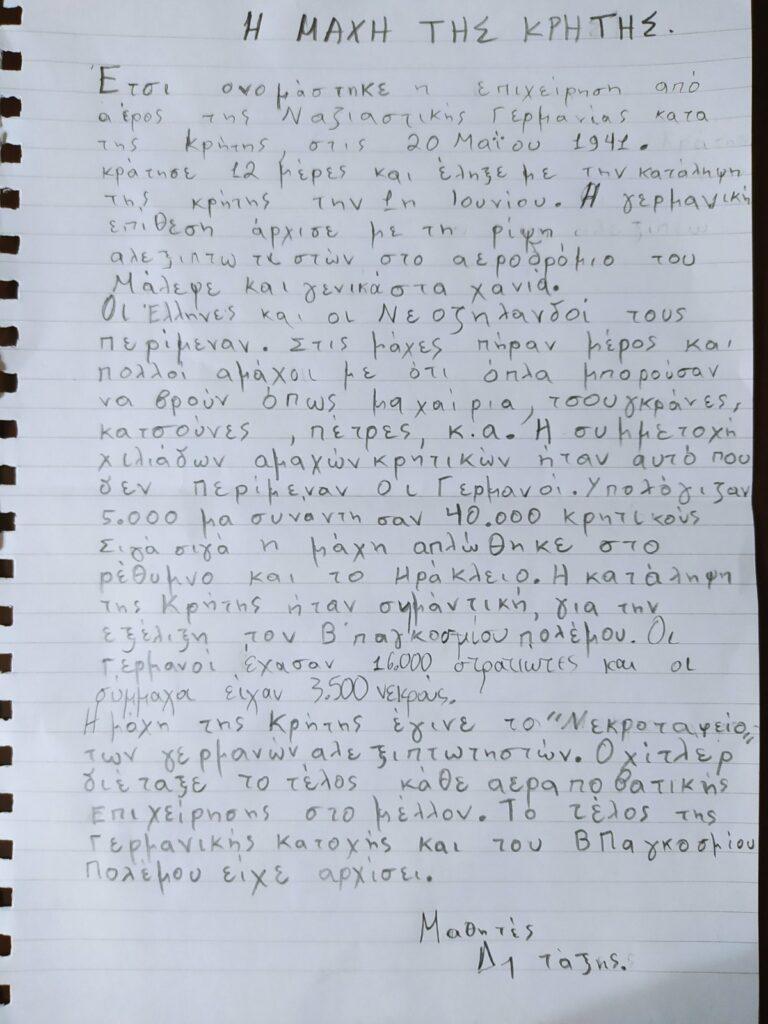 Η ΜΑΧΗ ΤΗΣ ΚΡΗΤΗΣ.
Έτσι ονομάστηκε η επιχείρηση από
αέρος της Ναζιαστικής Γερμανίας κατα
της Κρήτης, στις 20 Μαΐου 1941.
κράτησε 12 μέρες και έληξε με την κατάληψη
της κρήτης την 1η Ιουνίου. Η γερμανική
επίθεση άρχισε με τη ρίψη
αλεξιπτωτιστών στο αεροδρόμιο του
Μάλεφε και γενικά στα χανιά.
Οι Έλληνες και οι Νεοζηλανδοί τους
περίμεναν. Στις μάχες πήραν μέρος και
πολλοί αμάχοι με ότι όπλα μπορούσαν
να βρούν όπως μαχαίρια, τσουγκράνες,
κατσούνες, πέτρες, κ.α. Η συμμετοχή
χιλιάδων αμαχών κρητικών ήταν αυτό που
δεν περίμεναν οι Γερμανοί. Υπολόγιζαν
5.000 μα συναντησαν 40.000 κρητικούς
Σιγά σιγά η μάχη απλώθηκε στο
ρέθυμνο και το Ηράκλειο. Η κατάληψη
της Κρήτης ήταν σημάντική, για την
εξέλιξη τον Β' παγκοσμίου πολέμου. Οι
Γερμανοί έχασαν 16.000 στρατιώτες και οι
σύμμαχα είχαν 3.500 νεκρούς.
Η μάχη της Κρήτης έγινε το "Νεκροταφείο"
των γερμανών αλεξιπτωτηστών. Ο χίτλερ
διέταξε το τέλος κάθε αεραποβατικής
επιχείρησης στο μέλλον. Το τέλος της
Γερμανικής κατοχής και του Β Παγκοσμίου
Πολέμου είχε αρχίσει.
Μαθητές
Δ1 τάξης.